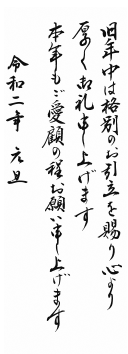 旧年中は格別のお引立を賜り心より
厚く御礼申し上げます
本年もご愛顧の程お願い申し上げます
令和二年 元旦